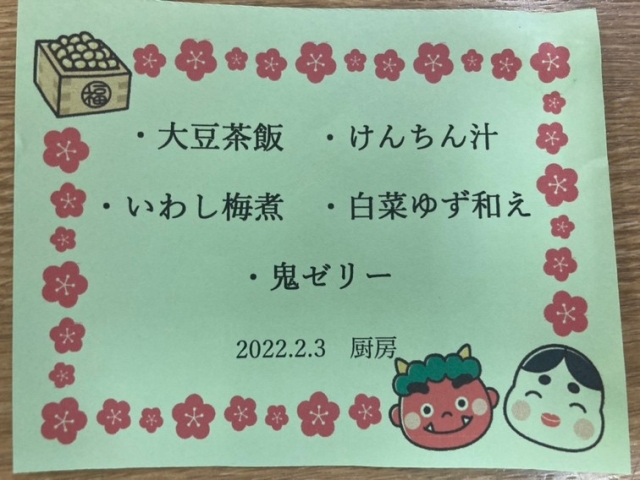 福
・大豆茶飯　・けんちん汁
・いわし梅煮　・白菜ゆず和え
・鬼ゼリー
2022.2.3　厨房